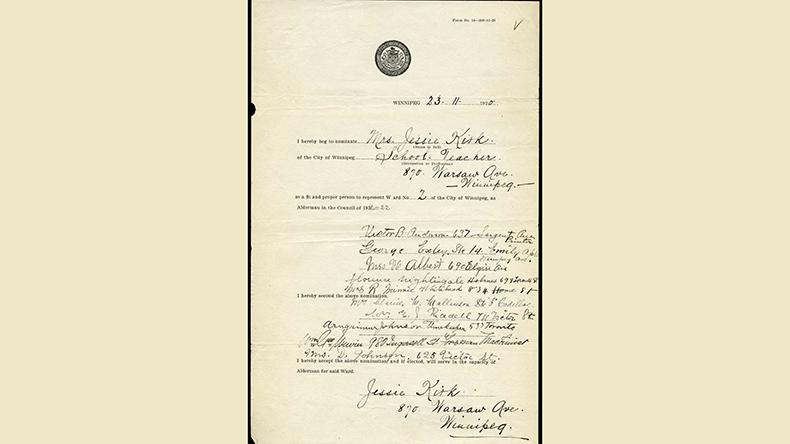 WINNIPEG 23. 11. 1920.
I hereby beg to nominate Mrs. Jessie Kirk.
(Name in full)
of the City of Winnipeg School Teacher
(Occupation or Profession)
870. Warsaw Ave.
— Winnipeg. —
as a fit and proper person to represent Ward No. 2 of the City of Winnipeg, as
Alderman in the Council of
Victor B Anderson 637 Sargent Ave
Printer
George 14 Emily
Winnipeg
Mrs W Albert 690 Elgin Ave
Florence Nightingale Holmes
Mrs R 834 Home St
I hereby second the above nomination.
Mallinson 5 Cadillac
Mrs. E. J. Riddell 711 Victor St.
Arngrimur Johnson Timekeeper Toronto
980 Ingersoll St. Foreman Machinist
Mrs. D. Johnson, 625 Victor St.
I hereby accept the above nomination and if elected, will serve in the capacity of
Alderman for said Ward.
Jessie Kirk.
870. Warsaw Ave.
Winnipeg.